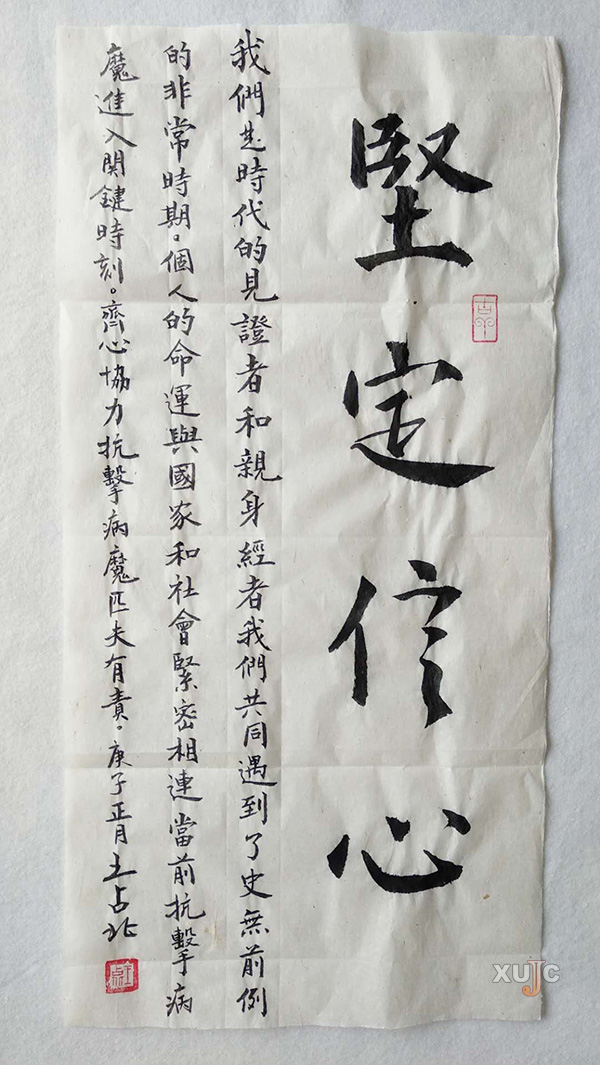 堅定信心
我們是時代的見證者和親身經者我們共同遇到了史無前例
的非常時期。個人的命運與國家和社會緊密相連當前抗擊病
魔進入関鍵時刻。齊心協力抗擊病魔匹夫有責。庚子正月王占北
XUJC